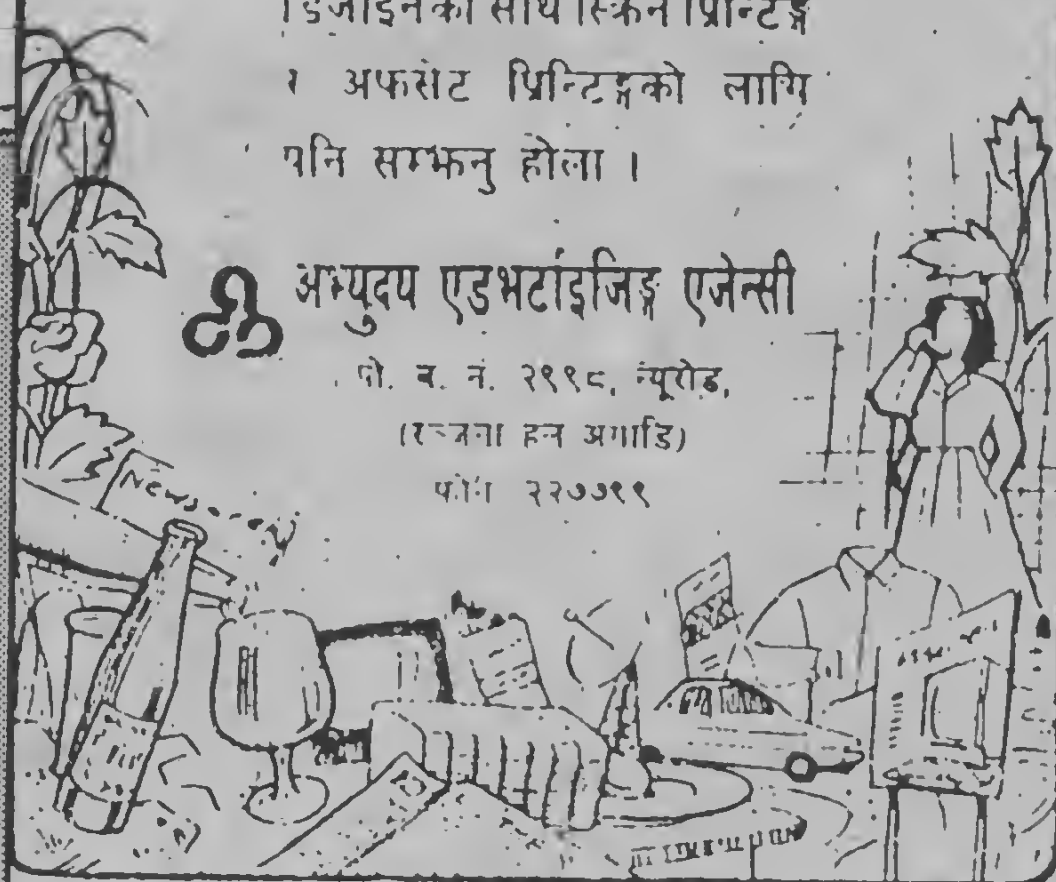 डिजाइनको साथै स्क्रिन प्रिन्टिङ्ग
र अफसेट प्रिन्टिङ्गको लागि
पनि सम्झनु होला ।
अभ्युदय एडभर्टाइजिङ्ग एजेन्सी
पो. ब. नं. २९९८, न्यूरोड,
(रञ्जना हल अगाडि)
फोन २२७७९९
News